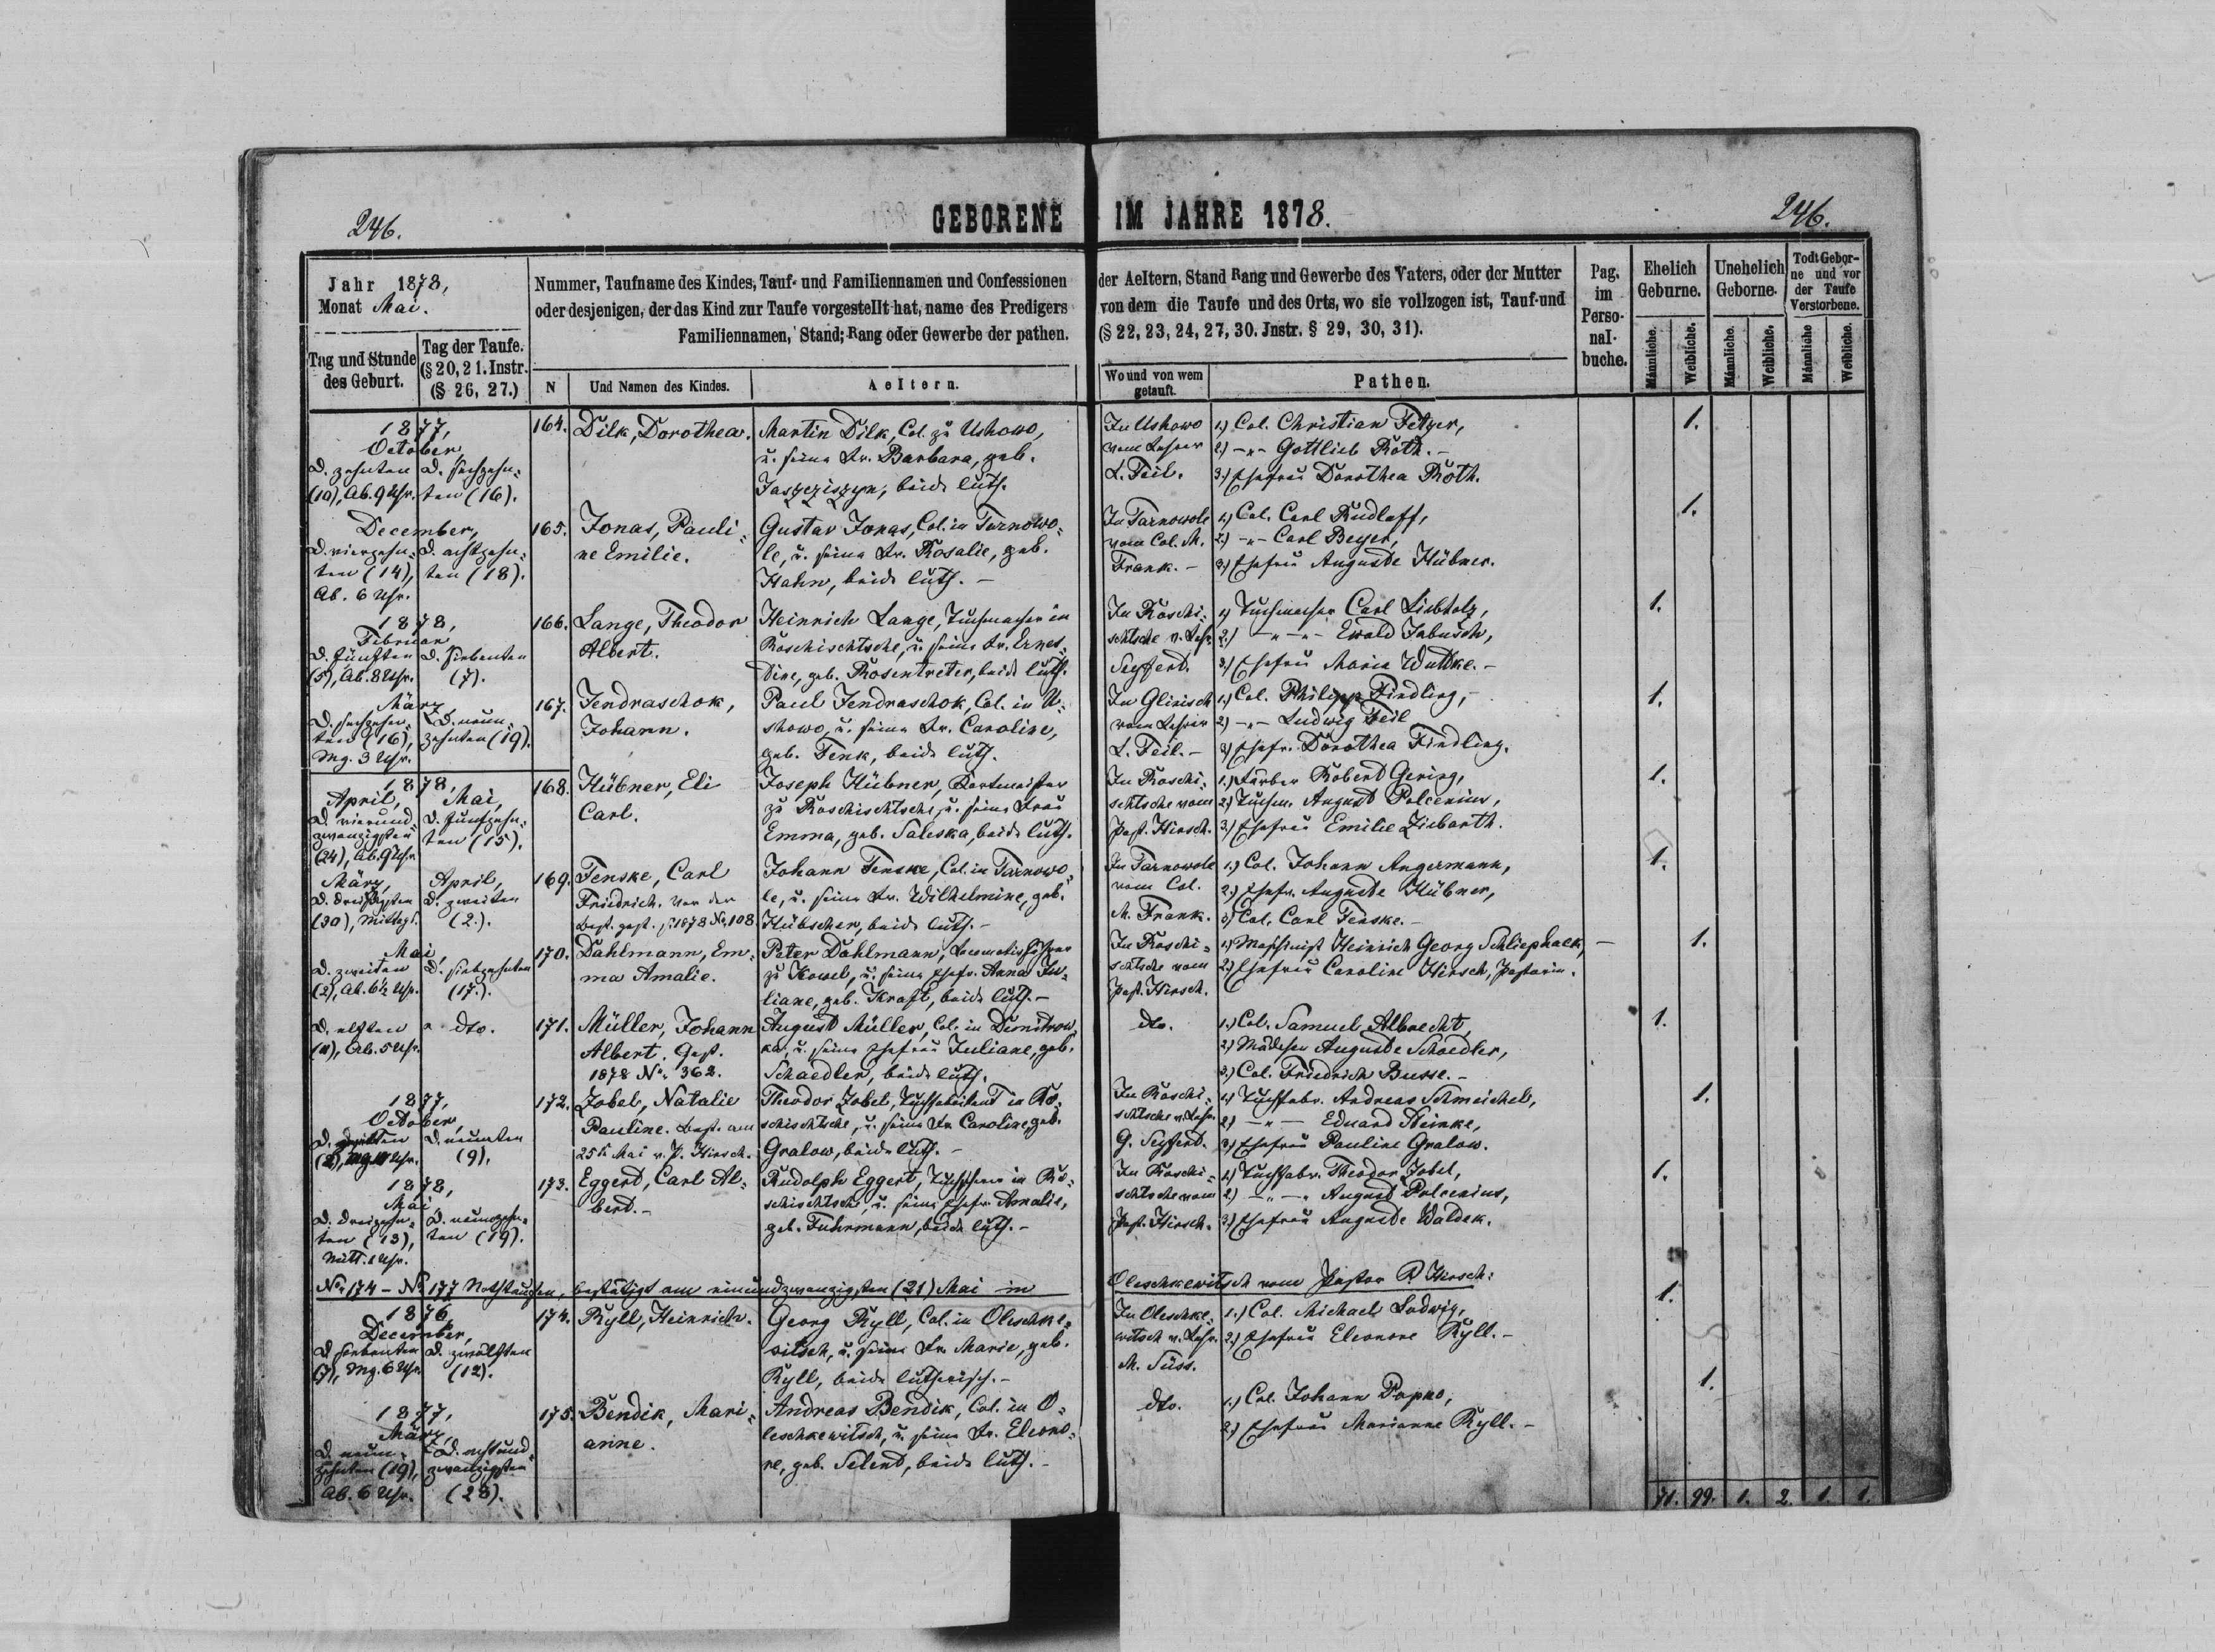 246.
GEBORENE IM JAHRE 1878.
246.
Jahr 1878,
Monat Mai.
Tag und Stunde des Geburt.
Tag der Taufe.
(§ 20, 21. Instr.
(§ 26, 27.)
Nummer, Taufname des Kindes, Tauf- und Familiennamen und Confessionen der Aeltern, Stand Rang und Gewerbe des Vaters, oder der Mutter
oder desjenigen, der das Kind zur Taufe vorgestellt hat, name des Predigers von dem die Taufe und des Orts, wo sie vollzogen ist, Tauf-und
Familiennamen, Stand; Rang oder Gewerbe der pathen. (§ 22, 23, 24, 27, 30. Jnstr. § 29, 30, 31).
N
Und Namen des Kindes.
Aeltern.
Wo und von wem getauft.
Pathen.
Pag. im Perso-nal-buche.
Ehelich Geburne.
Unehelich Geborne.
Todt Gebor-ne und vor der Taufe Verstorbene.
Männliche.
Weibliche.
Männliche.
Weibliche.
Männliche
Weibliche.
1877,
October,
D. zehnten
(10), Ab. 9 Uhr.
D. sechzehn-
ten (16).
164.
Dilk, Dorothea.
Martin Dilk, Col. zu Ushowo,
u. seine Fr. Barbara, geb.
Jaszeziszyn, beide luth.
In Ushowo
vom Lehrer
L. Feil.
1.) Col. Christian Fetzer,
2.) -"- Gottlieb Roth. -
3.) Ehefrau Dorothea Roth.
1.
December,
D. vierzehn-
ten (14),
Ab. 6 Uhr.
D. achtzehn-
ten (18).
165.
Jonas, Pauli-
ne Emilie.
Gustav Jonas, Col. in Tarnowo-
le, u. seine Fr. Rosalie, geb.
Hahn, beide luth. -
In Tarnowole
vom Col. M.
Frank. -
1.) Col. Carl Rudloff,
2.) -"- Carl Beyer,
3.) Ehefrau Auguste Hübner.
1.
1878,
Februar
D. fünften
(5), Ab. 8 Uhr.
D. siebenten
(7).
166.
Lange, Theodor
Albert.
Heinrich Lange, Tuchmacher in
Roschischtsche, u. seine Fr. Ernes-
tine, geb. Rosentreter, beide luth.
In Roschi-
schtsche v. Lehr.
Seyferd.
1.) Tuchmacher Carl Liebholz,
2.) -"-"- Ewald Jabusch,
3.) Ehefrau Maria Wuttke. -
1.
März,
D. sechzehn-
ten (16),
Mg. 3 Uhr.
D. neun-
zehnten (19).
167.
Jendraschok,
Johann.
Paul Jendraschok, Col. in U-
showo, u. seine Fr. Caroline,
geb. Fenk, beide luth.
In Glinisch
vom Lehrer
L. Feil. -
1.) Col. Philipp Findling, -
2.) -"- Ludwig Feil
3.) Ehefr. Dorothea Findling.
1.
1878,
April,
D. vierund-
zwanzigsten
(24), Ab. 9 Uhr.
Mai,
D. fünfzehn-
ten (15).
168.
Hübner, Eli
Carl.
Joseph Hübner,
zu Roschischtsche, u. seine Frau
Emma, geb. Saleska, beide luth.
In Roschi-
schtsche vom
Past. Hirsch.
1.) Färber Robert Gering,
2.) Tuchm. August Polcenius,
3.) Ehefrau Emilie Ziebarth.
1.
März,
D. dreißigsten
(30), Mittags.
April,
D. zweiten
(2.).
169.
Fenske, Carl
Friedrich. Vor der
Best. gest. s. 1878 No. 108
Johann Fenske, Col. in Tarnowo-
le, u. seine Fr. Wilhelmine, geb.
Hübscher, beide luth. -
In Tarnowole
vom Col.
M. Frank.
1.) Col. Johann Angermann,
2.) Ehefr. Auguste Hübner,
3.) Col. Carl Fenske. -
1.
Mai,
D. zweiten
(2), Ab. 6½ Uhr.
D. siebzehnten
(17.).
170.
Dahlmann, Em-
ma Amalie.
Peter Dahlmann, Locomotivführer
zu Kowel, u. seine Ehefr. Anna Ju-
liane, geb. Kraft, beide luth. -
In Roschi-
schtsche vom
Past. Hirsch.
1.) Maschinist Heinrich Georg Schliephack, -
2.) Ehefrau Caroline Hirsch, Pastorin.
1.
D. elften
(11), Ab. 5 Uhr.
dto.
171.
Müller, Johann
Albert. Gest.
1878 No. 362.
August Müller, Col. in Dimitrow-
ka, u. seine Ehefrau Juliane, geb.
Schaedler, beide luth.
dto.
1.) Col. Samuel Albrecht,
2.) Mädchen Auguste Schoedler,
3.) Col. Friedrich Busse. -
1.
1877,
October,
D. dritten
D. neunten
(9).
172.
Zobel, Natalie
Pauline. Best. am
25ten Mai v. P. Hirsch.
Theodor Zobel, Tuchfabrikant in Ro-
schischtsche, u. seine Fr. Caroline, geb.
Gralow, beide luth. -
In Roschi-
schtsche v. Lehr.
G. Seyferd.
1.) Tuchfabr. Andreas Schmeichel,
2.) -"- Eduard Heinke,
3.) Ehefrau Pauline Gralow.
1.
1878,
Mai,
D. dreizehn-
ten (13),
Mitt. 1 Uhr.
D. neunzehn-
ten (19).
173.
Eggert, Carl Al-
bert. -
Rudolph Eggert, in Ro-
schischtsche, u. seine Ehefr. Amalie,
geb. Fuhrmann, beide luth. -
In Roschi-
schtsche vom
Past. Hirsch.
1.) Tuchfabr. Theodor Zobel,
2.) -"-"- August Polcenius,
3.) Ehefrau Auguste Waldek.
1.
No. 174 - No. 177 Nothtaufen, bestätigt am einundzwanzigsten (21) Mai in Oleschkewitsch vom Pastor R Hirsch:
1876,
December,
D. siebenten
(7), Mg. 6 Uhr.
D. zwölften
(12).
174.
Ryll, Heinrich.
Georg Ryll, Col. in Oleschke-
witsch, u. seine Fr. Marie, geb.
Ryll, beide lutherisch. -
In Oleschke-
witsch v. Lehr.
M. Süss.
1.) Col. Michael Ludwig,
2.) Ehefrau Eleonore Ryll. -
1.
1877,
März,
D. neun-
zehnten (19),
Ab. 6 Uhr.
D. achtund-
zwanzigsten
(28).
175.
Bendik, Mari-
anne.
Andreas Bendik, Col. in O-
leschkewitsch, u. seine Fr. Eleono-
re, geb. Selent, beide luth. -
dto.
1.) Col. Johann Popko,
2.) Ehefrau Marianne Ryll. -
1.
71. 99. 1. 2. 1. 1.